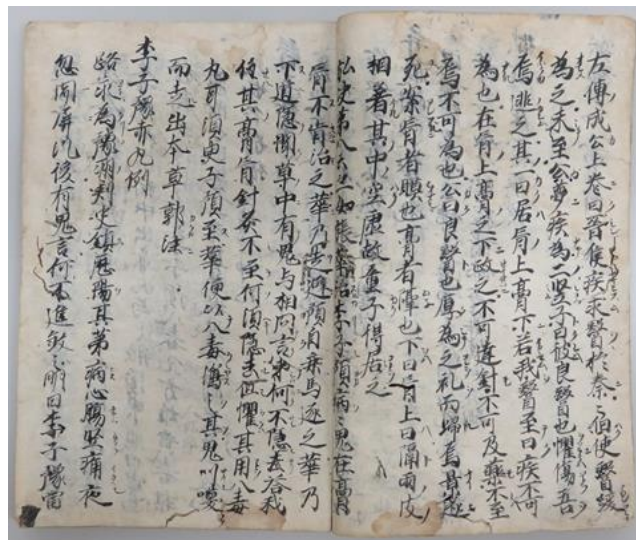 左傳成公上卷曰晉侯疾求醫於秦〻伯使醫緩
為之未至公夢疾為二竪子曰彼良醫也懼傷吾
焉逃之其一曰居肓上膏下若我醫至曰疾不可
為也在肓上膏之下攻之不可達針不可及藥不至
焉不可為也公曰良醫也厚為之礼而歸
死案肓者膜也膏者也下曰肓上曰隔兩皮
相著其中空虛故竪子得居之
病〻鬼在膏
肓不肯治之華乃逃避頭自乗馬逐之華乃
下道隱聞草中有鬼与相問言汝何不隱去答我
使其膏肓針灸不至何須隱去但懼其用八毒
丸耳須臾子預至華便以八毒傷之其鬼叫喚
而走出本草郭法
李子豫赤丸例
路永為豫洲刺史鎮歷陽其弟病心腸堅痛夜
忽聞屏風後有鬼言何不進敵之明日李子豫當